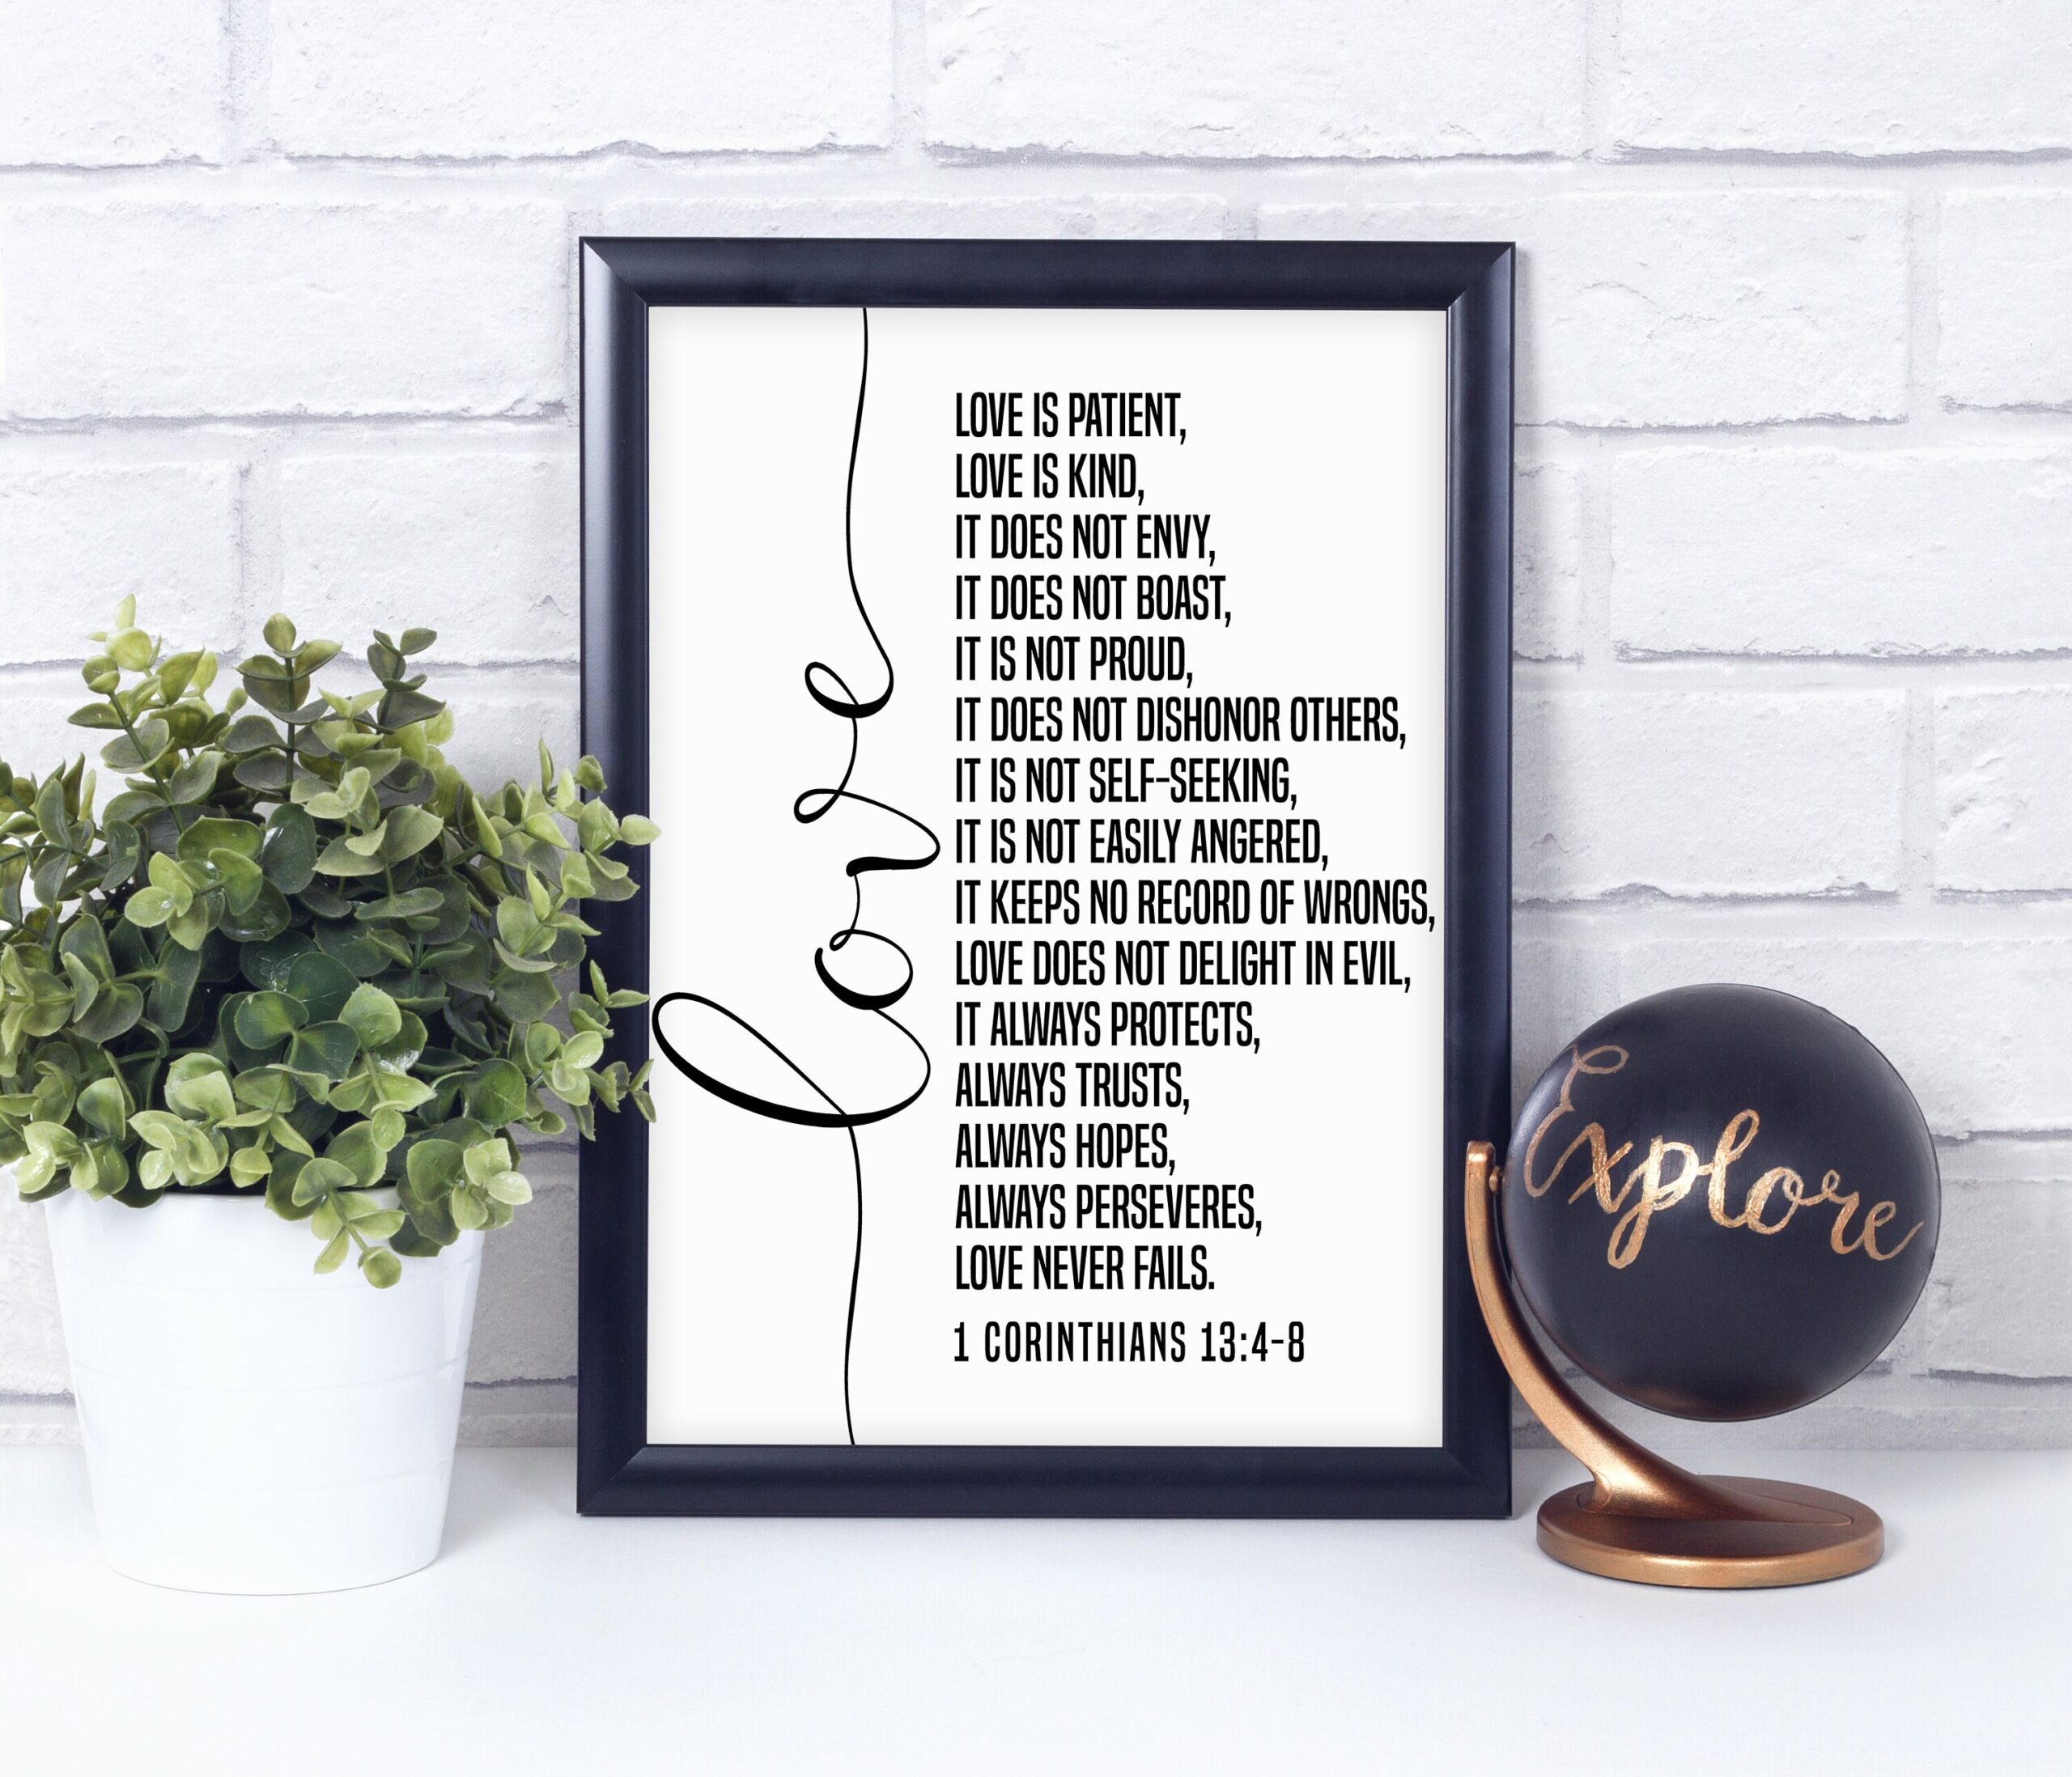 love
LOVE IS PATIENT,
LOVE IS KIND,
IT DOES NOT ENVY,
IT DOES NOT BOAST,
IT IS NOT PROUD,
IT DOES NOT DISHONOR OTHERS,
IT IS NOT SELF-SEEKING,
IT IS NOT EASILY ANGERED,
IT KEEPS NO RECORD OF WRONGS,
LOVE DOES NOT DELIGHT IN EVIL,
IT ALWAYS PROTECTS,
ALWAYS TRUSTS,
ALWAYS HOPES,
ALWAYS PERSEVERES,
LOVE NEVER FAILS.
1 CORINTHIANS 13:4-8
Explore